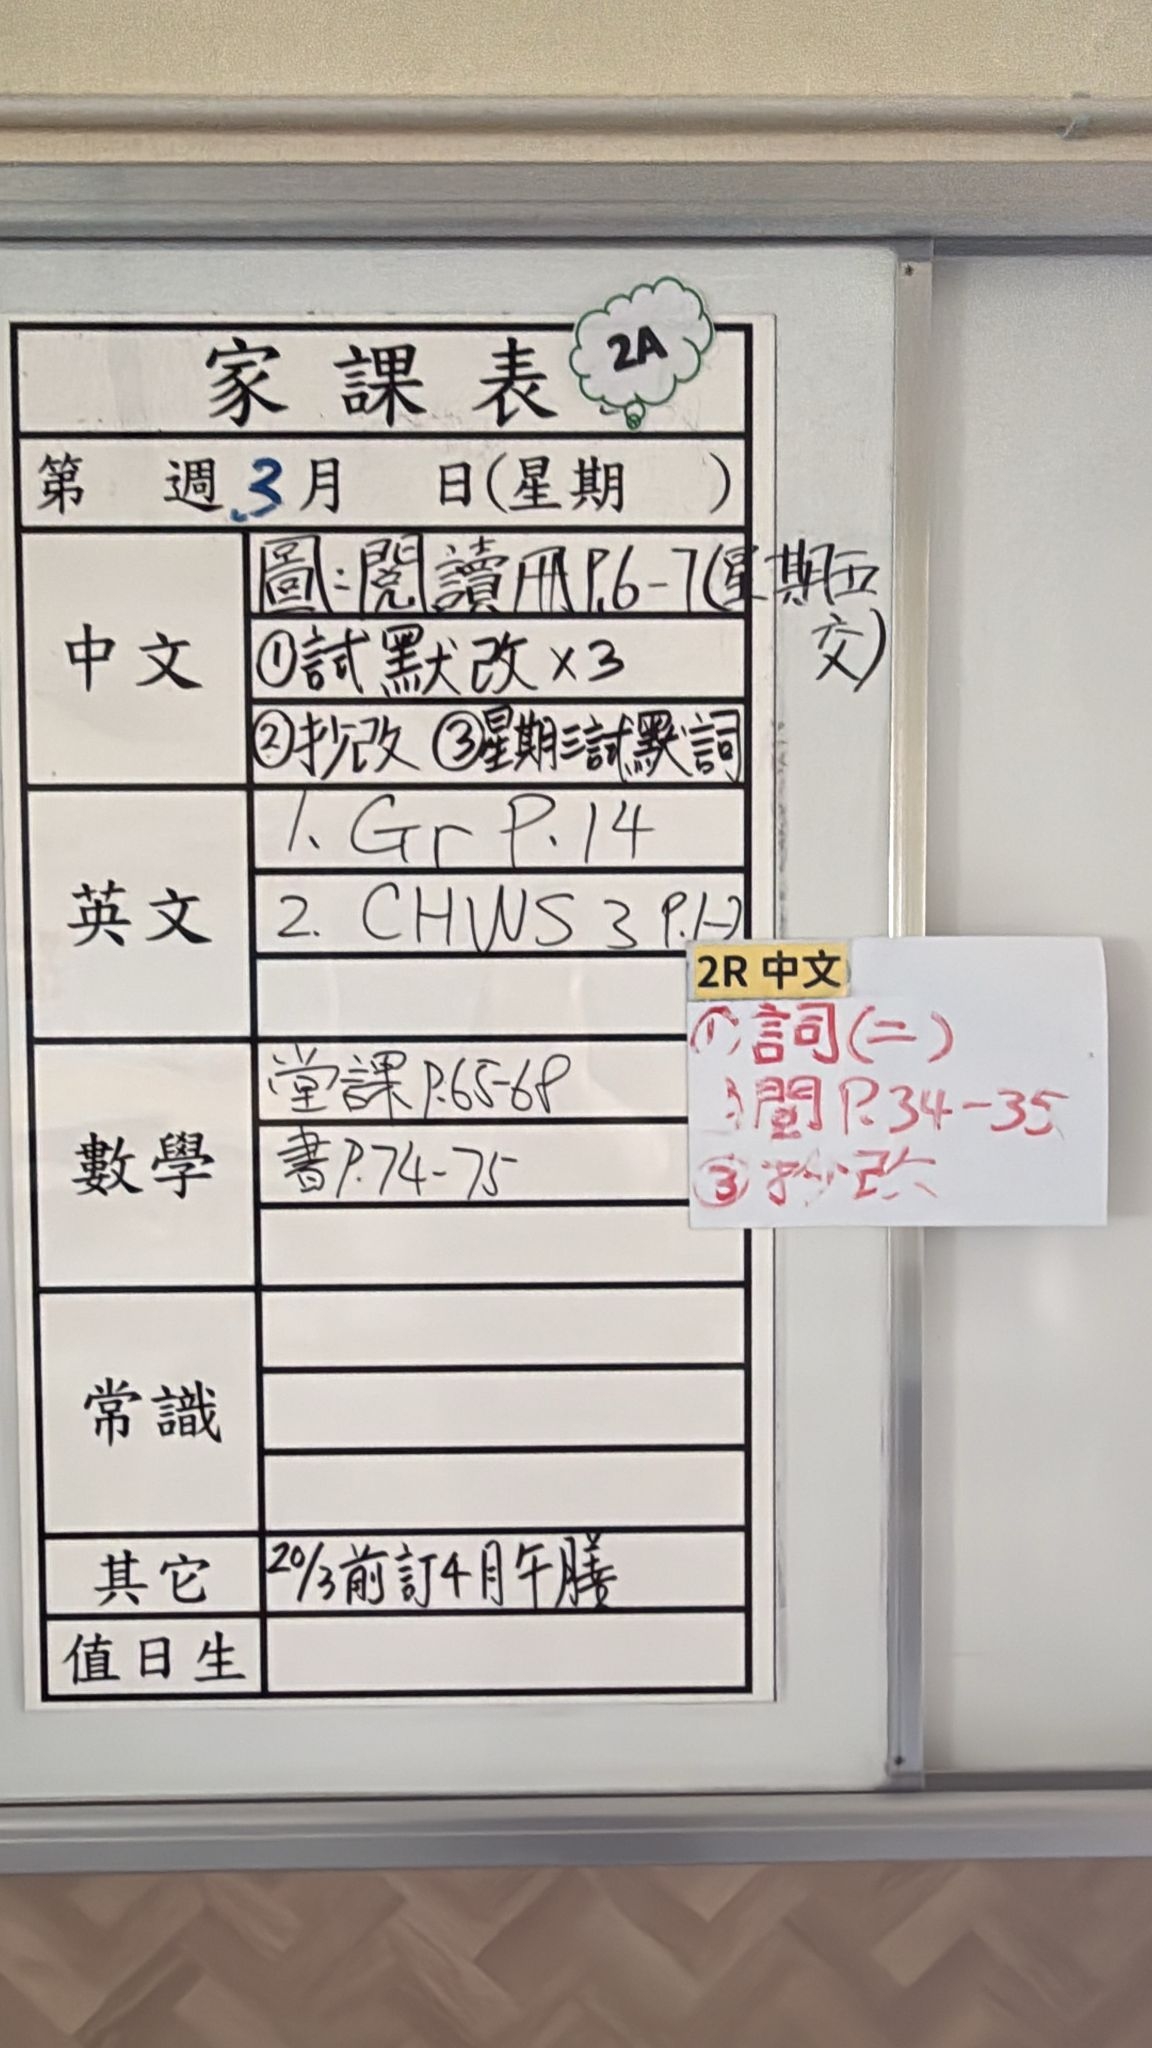 家課表 2A
第 週 3月 日(星期 )
中文
圖:閱讀冊P.6-7(星期五交)
①試默改×3
②抄改 ③星期三試默詞
英文
1. Gr P.14
2. CHWS 3 P.1-2
數學
堂課P.65-68
書P.74-75
常識
其它
20/3前訂4月午膳
值日生
2R 中文
①詞(二)
P.34-35
③抄改